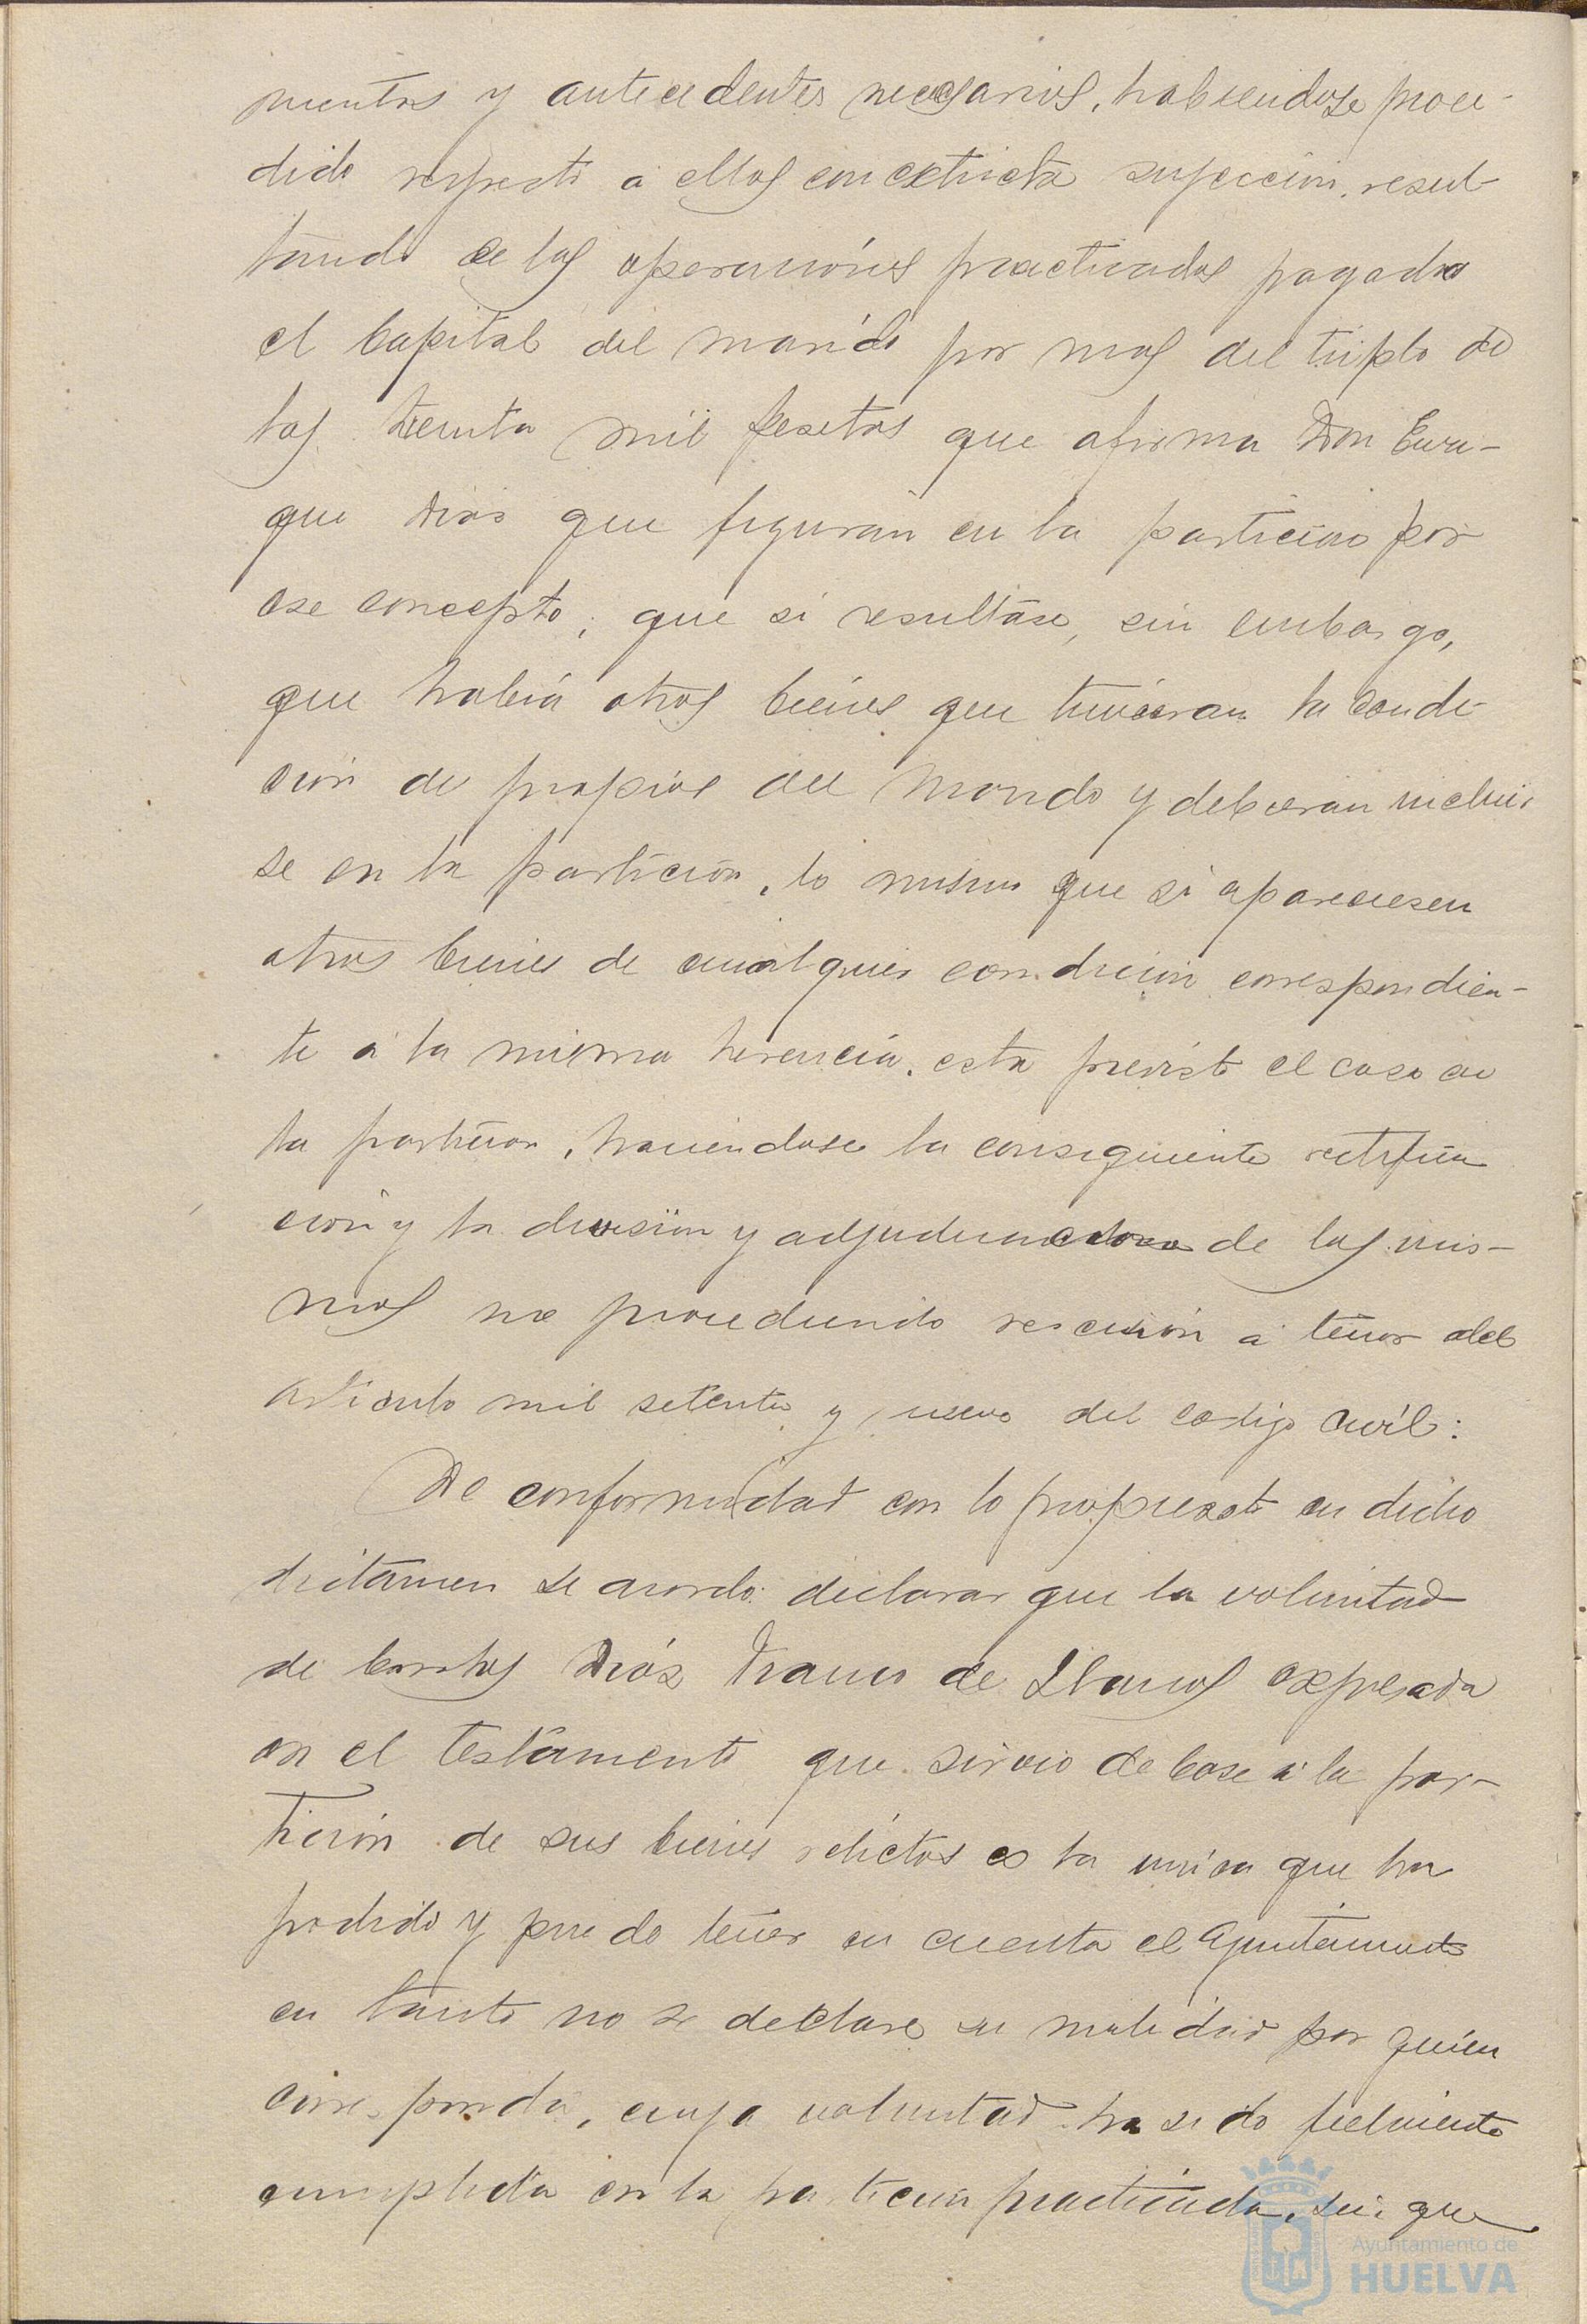 mentos y antecedentes necesarios, habiendose proce-
dido respecto á ellos con extricta sujeccion, resul-
tando de las operaciones practicadas pagado
el capital del marido por mas del triplo de
las treinta mil pesetas que afirma Don Enri-
que Dias que figuran en la particion por
ese concepto; que si resultase, sin embargo,
que habia otros bienes que tuvieran la condi-
cion de propios del marido y debieran incluir
se en la particion, lo mismo que si apareciesen
otros bienes de cualquier condicion correspondien-
te á la misma herencia, esta previsto el caso en
la particion, haciendose la consiguiente rectifica
cion y la division y adjudicacion de los mis-
mos no procediendo rescision á tenor del
articulo mil setenta y nueve del codigo civil:
De conformidad con lo propuesto en dicho
dictamen se acordo: declarar que la voluntad
de Carlos Dias Franco de Llanos expresada
en el testamento que sirvio de base á la par-
ticion de sus bienes relictos es la unica que ha
podido y puede tener en cuenta el Ayuntamiento
en tanto no se declare su nulidad por quien
corresponda, cuya voluntad ha sido fielmente
cumplida en la particion practicada, sin que
Ayuntamiento de
HUELVA